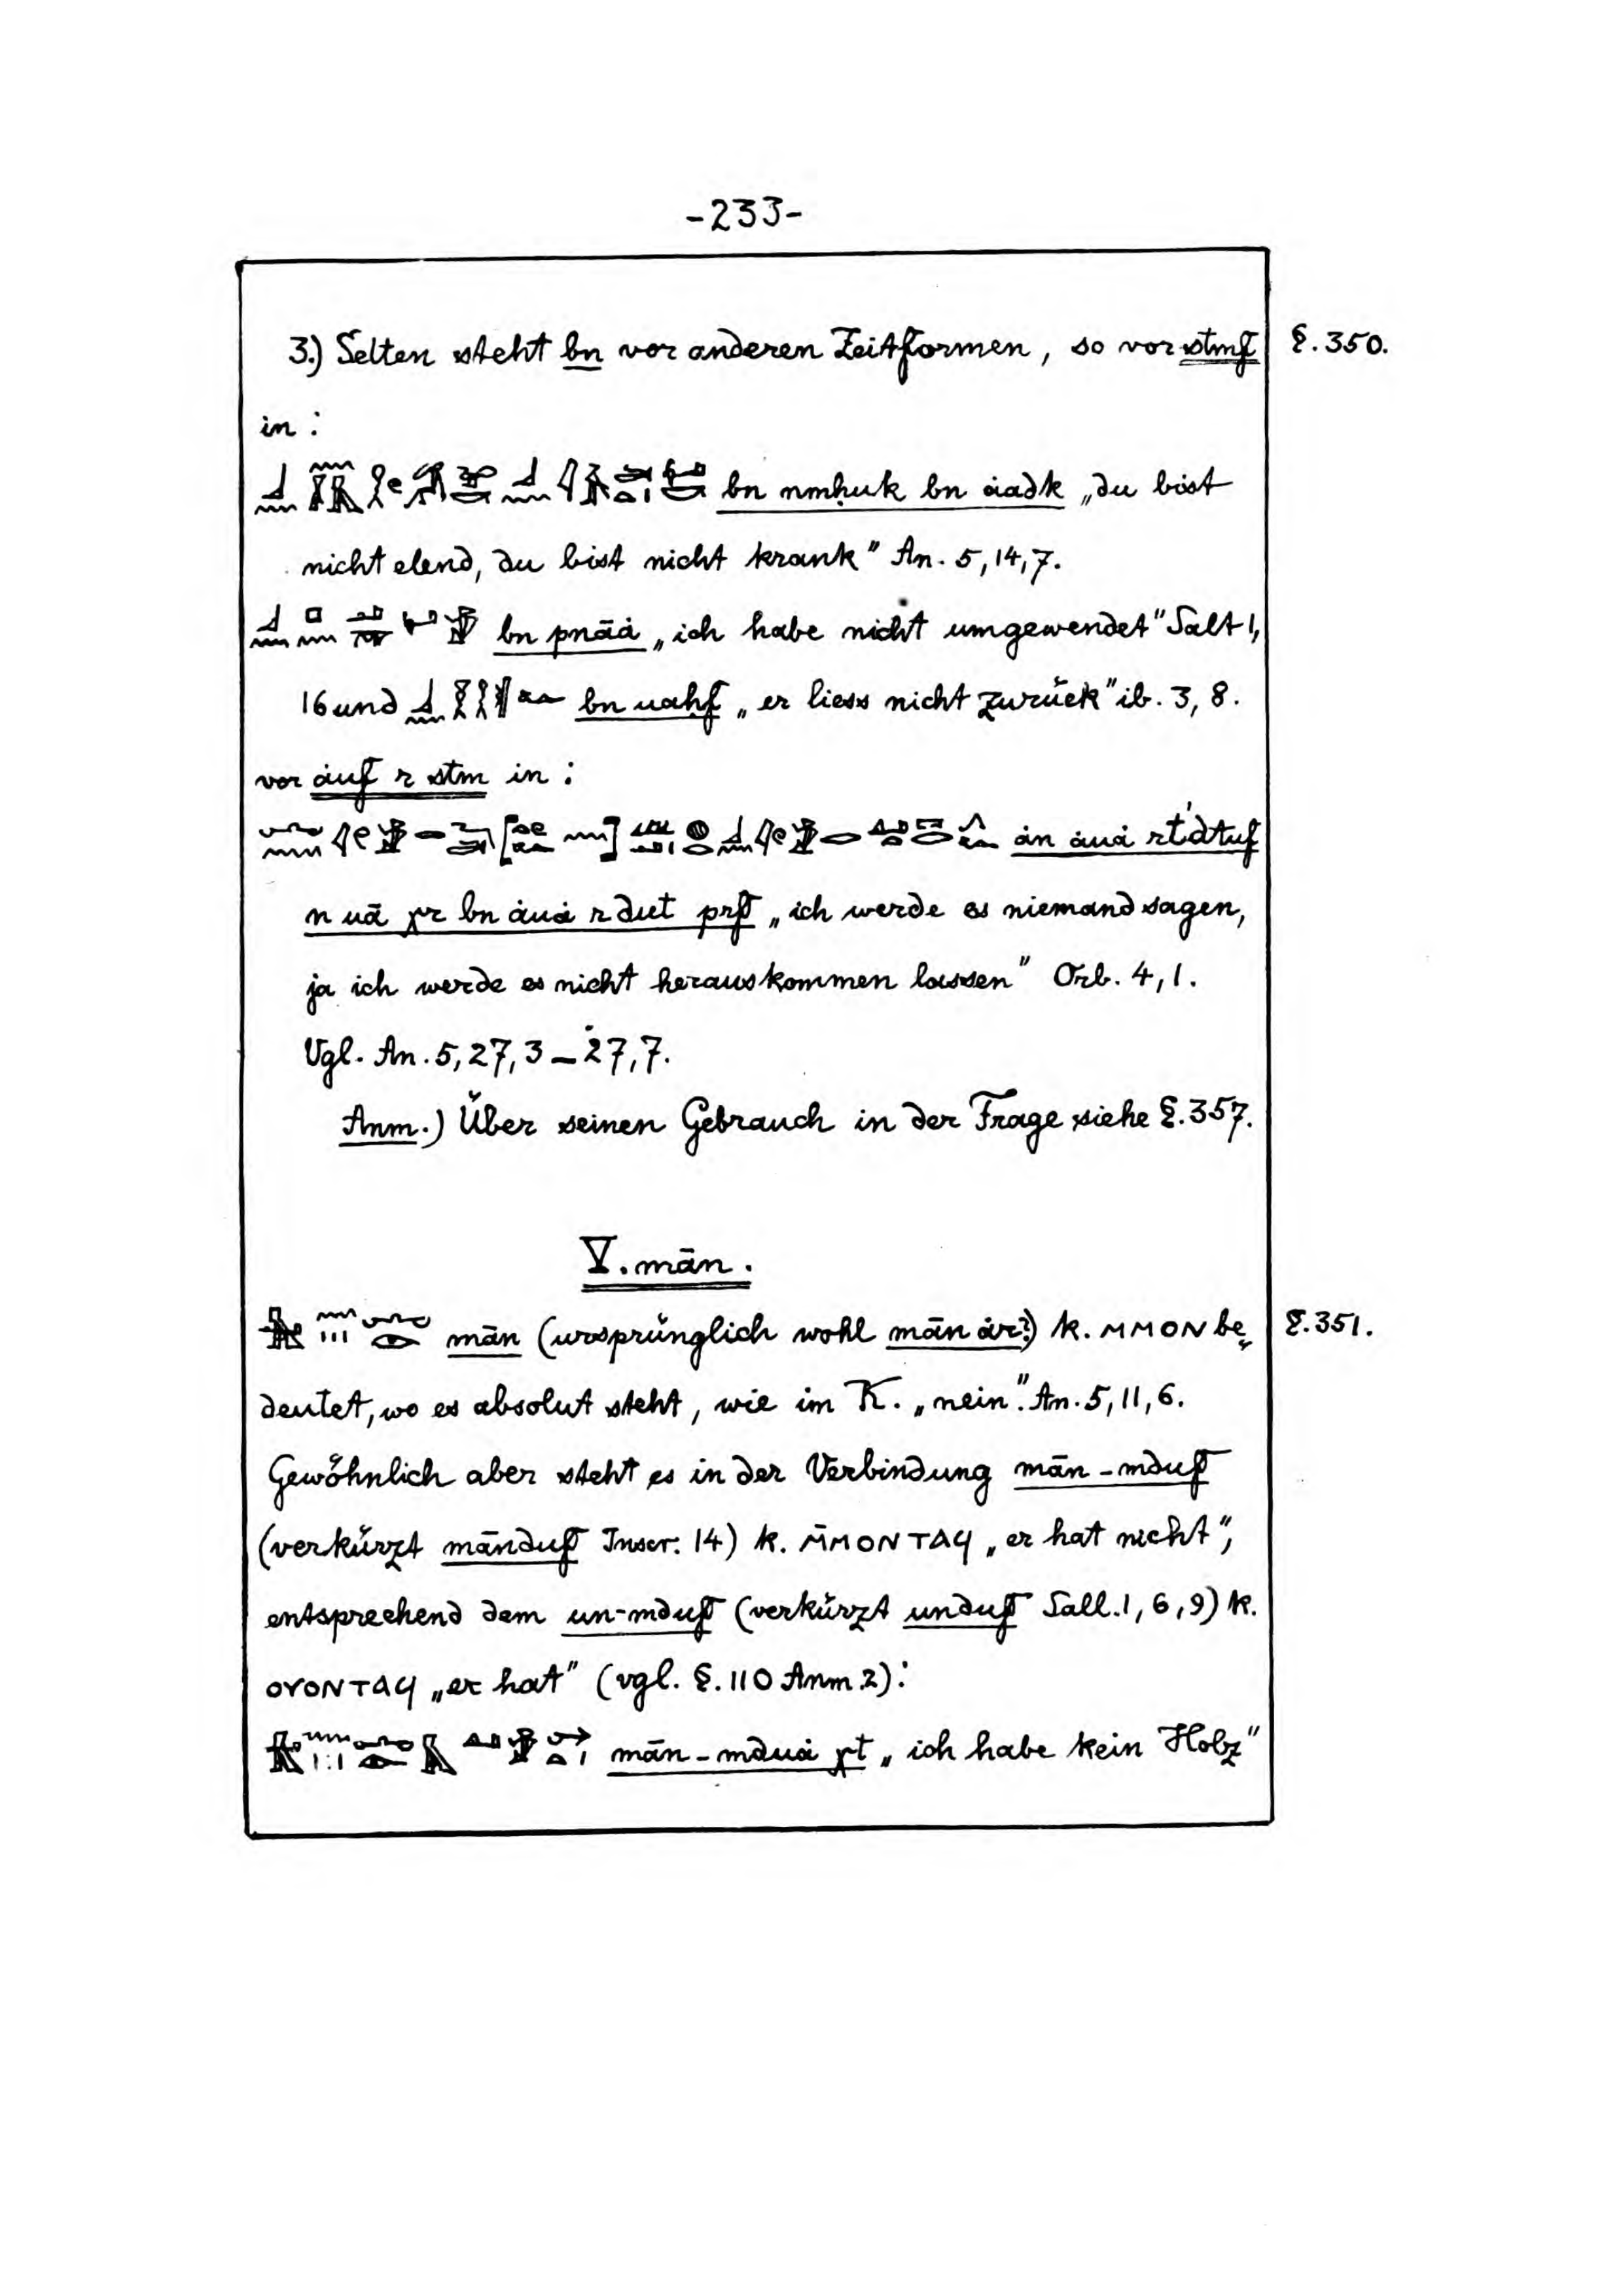 -233-
3.) Selten steht bn vor anderen Zeitformen, so vor stmf §.350.
in:
bn nmḥuk bn ȧadk „du bist
nicht elend, du bist nicht krank" An. 5,14,7.
bn pnāȧ „ich habe nicht umgewendet" Salt 1,
16 und bn uaḥf „er liess nicht zurück" ib. 3, 8.
vor ȧuf r stm in:
ȧn ȧuȧ r
n uā χr bn ȧuȧ r dut prf „ich werde es niemand sagen,
ja ich werde es nicht herauskommen lassen" Orb. 4,1.
Vgl. An. 5,27,3 – 27,7.
Anm.) Über seinen Gebrauch in der Frage siehe §.357.
V. mān.
mān (ursprünglich wohl mān ȧr?) K. ⲘⲘⲞⲚ be- §.351.
deutet, wo es absolut steht, wie im K. „nein". An. 5,11,6.
Gewöhnlich aber steht es in der Verbindung mān-mduf
(verkürzt mānduf Inscr. 14) K. Ⲙ̄ⲘⲞⲚ ⲦⲀϤ „er hat nicht",
entsprechend dem un-mduf (verkürzt unduf Sall. 1, 6, 9) K.
ⲞⲨⲞⲚ ⲦⲀϤ „er hat" (vgl. §.110 Anm. 2):
mān-mduȧ χt „ich habe kein Holz"